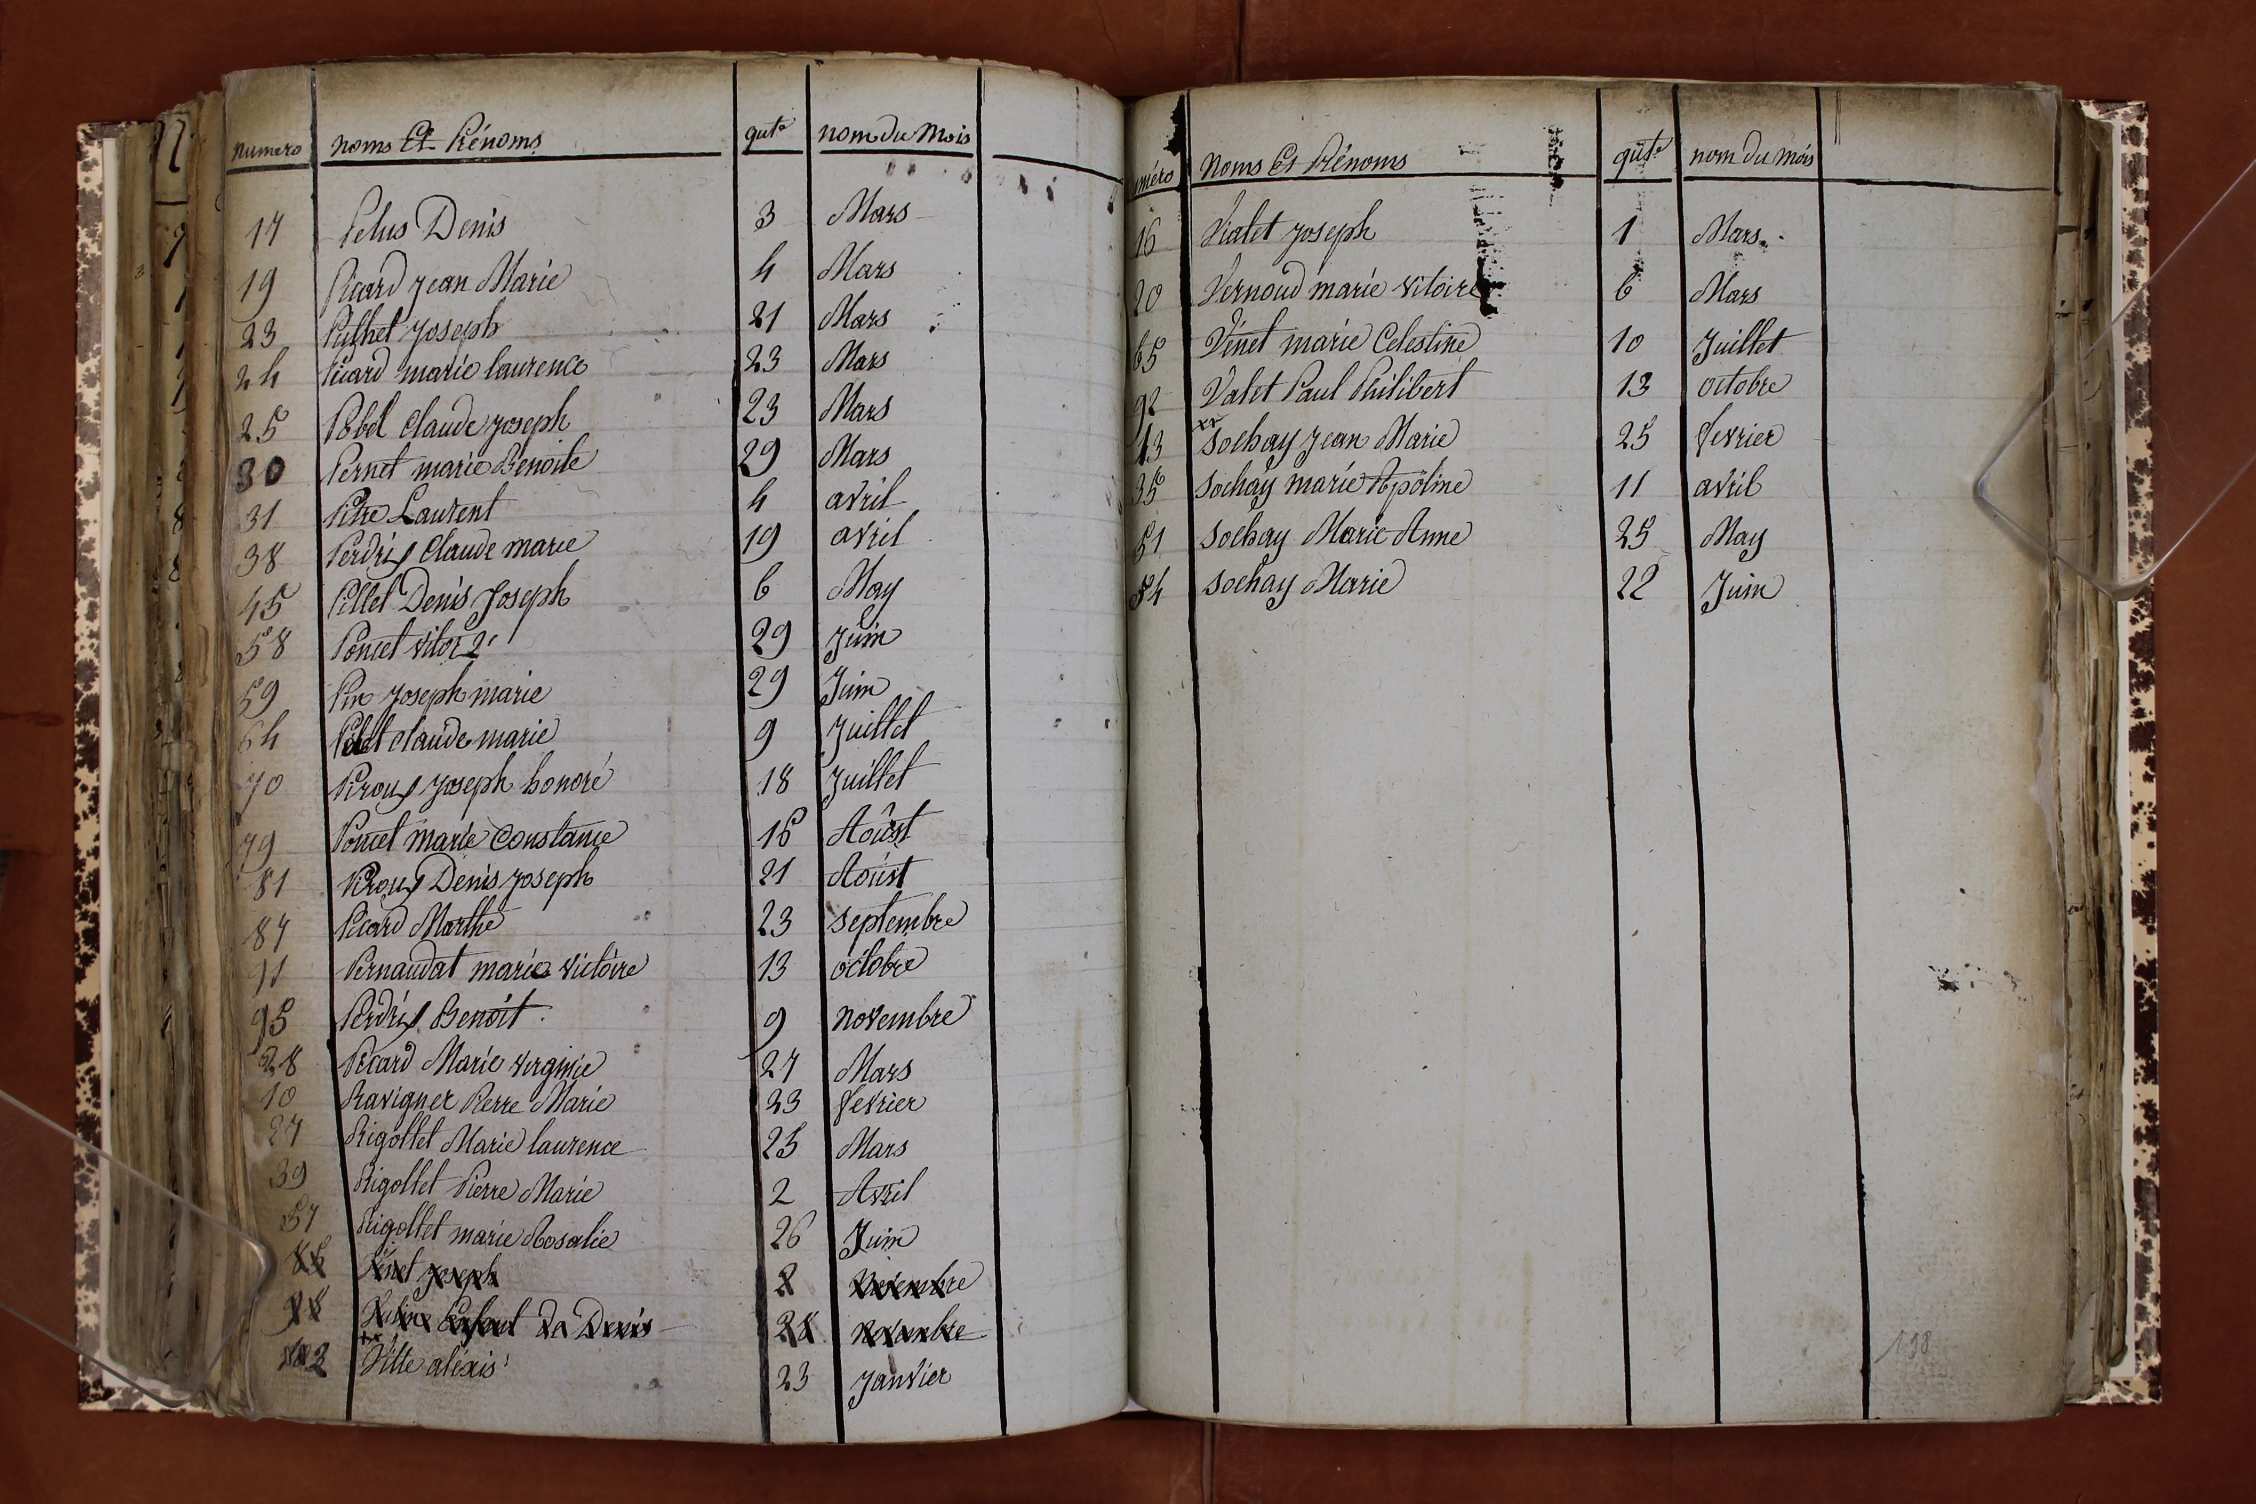 numero noms Et Prénoms qute nom du Mois
17 Pelus Denis 3 Mars
19 Picard Jean Marie 4 Mars
23 Joseph 21 Mars
24 Picard marie laurence 23 Mars
25 Pobel Claude Joseph 23 Mars
30 Pernet marie Benoite 29 Mars
31 Pitre Laurent 4 avril
38 Perdrix Claude marie 19 avril
45 Pillet Denis Joseph 6 May
58 Poncet 29 Juin
59 Joseph marie 29 Juin
64 claude marie 9 Juillet
70 Piroux Joseph honoré 18 Juillet
79 Poncet Marie Constance 15 Aoûst
81 Piroux Denis Joseph 21 Aoûst
87 Picard Marthe 23 septembre
91 Pernaudat marie victoire 13 octobre
95 Perdrix Benoit 9 novembre
28 Picard Marie virginie 27 Mars
10 Ravignet Pierre Marie 23 fevrier
27 Rigollet Marie laurence 25 Mars
39 Rigollet Pierre Marie 2 Avril
57 Rigollet marie Rosalie 26 Juin
Joseph
De Denis 28 novembre
Ville alexis 23 Janvier
méro Noms Et Prénoms qute nom du mois
16 Vialet Joseph 1 Mars
20 Vernoud marie vitoire 6 Mars
65 Vinet marie Celestine 10 Juillet
92 Valet Paul Philibert 13 octobre
13 sochay Jean Marie 25 fevrier
35 sochay marie Apoline 11 avril
51 sochay Marie Anne 25 May
54 sochay Marie 22 Juin
198